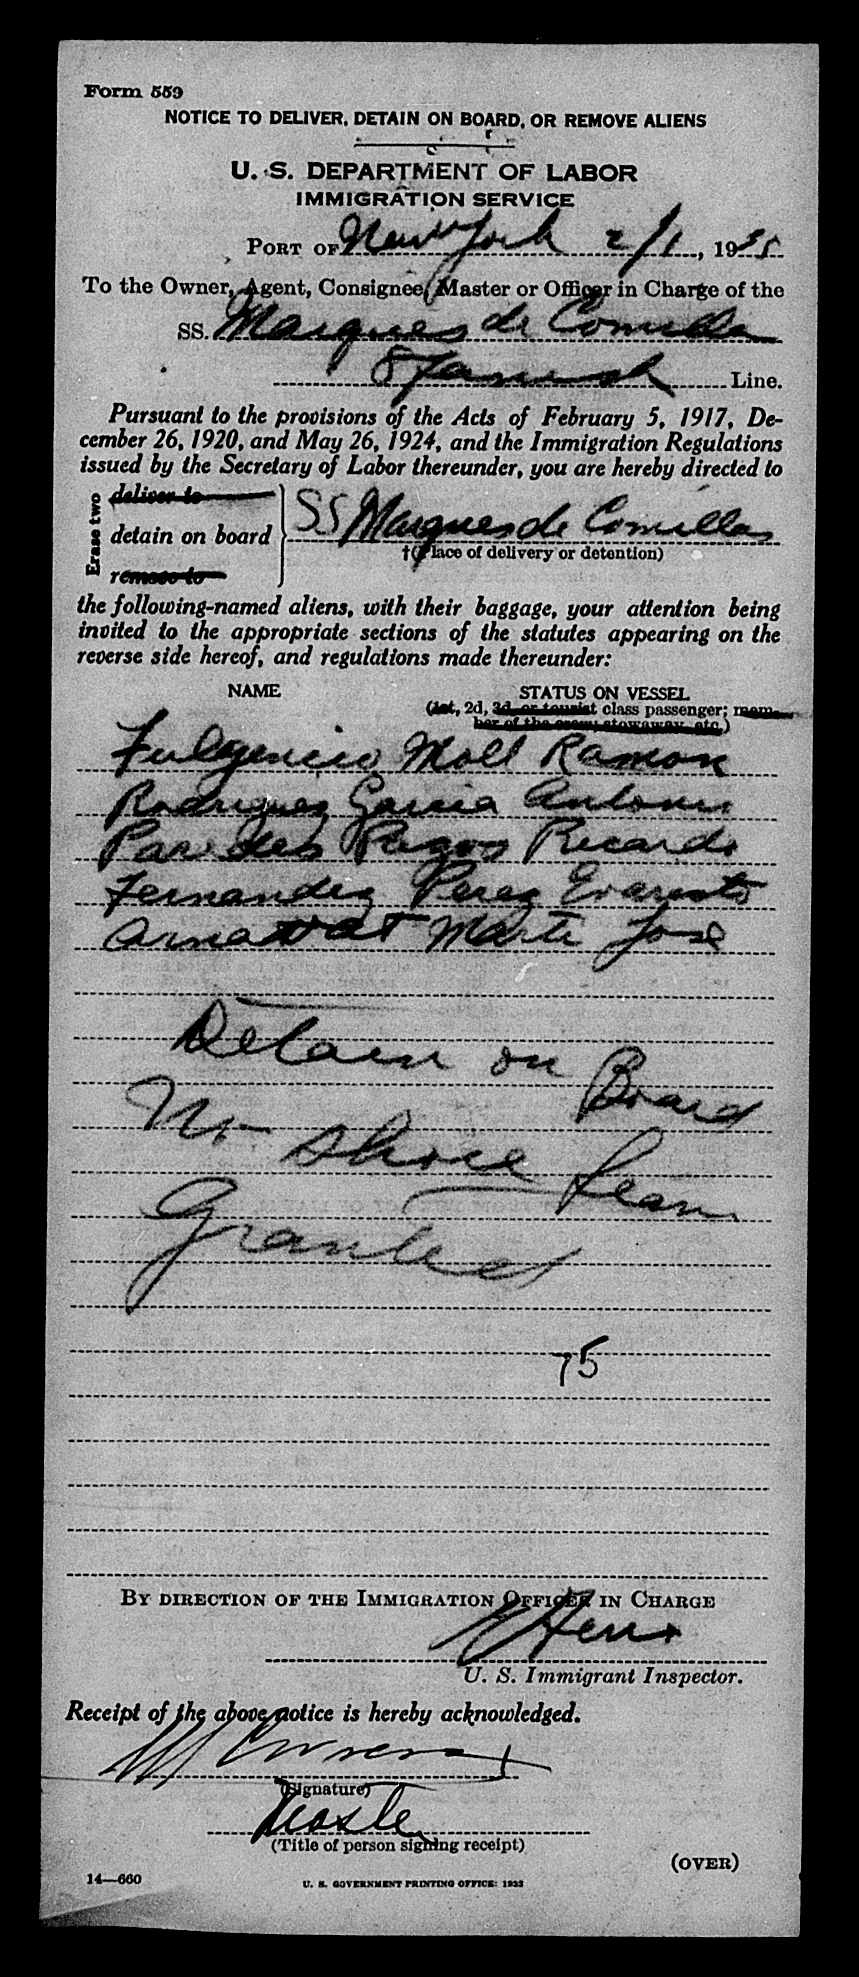 Form 559
NOTICE TO DELIVER, DETAIN ON BOARD, OR REMOVE ALIENS
U. S. DEPARTMENT OF LABOR
IMMIGRATION SERVICE
PORT OF New York 2/1, 1935
To the Owner, Agent, Consignee, Master or Officer in Charge of the
SS. Marques de Comillas
Spanish Line.
Pursuant to the provisions of the Acts of February 5, 1917, De-
cember 26, 1920, and May 26, 1924, and the Immigration Regulations
issued by the Secretary of Labor thereunder, you are hereby directed to
Erase two
deliver to
detain on board SS Marques de Comillas
†(Place of delivery or detention)
remove to
the following-named aliens, with their baggage, your attention being
invited to the appropriate sections of the statutes appearing on the
reverse side hereof, and regulations made thereunder:
NAME STATUS ON VESSEL
(1st, 2d, 3d, or tourist class passenger; mem-
ber of the crew, stowaway, etc.)
Fulgencio Moll Ramon
Rodriguez Garcia Antonio
Paredes Ricardo
Fernandez Perez Evaristo
Marti Jose
Detain on Board
No Shore Leave
Granted
75
BY DIRECTION OF THE IMMIGRATION OFFICER IN CHARGE
U. S. Immigrant Inspector.
Receipt of the above notice is hereby acknowledged.
(Signature)
Master
(Title of person signing receipt)
(OVER)
14—660
U. S. GOVERNMENT PRINTING OFFICE: 1933